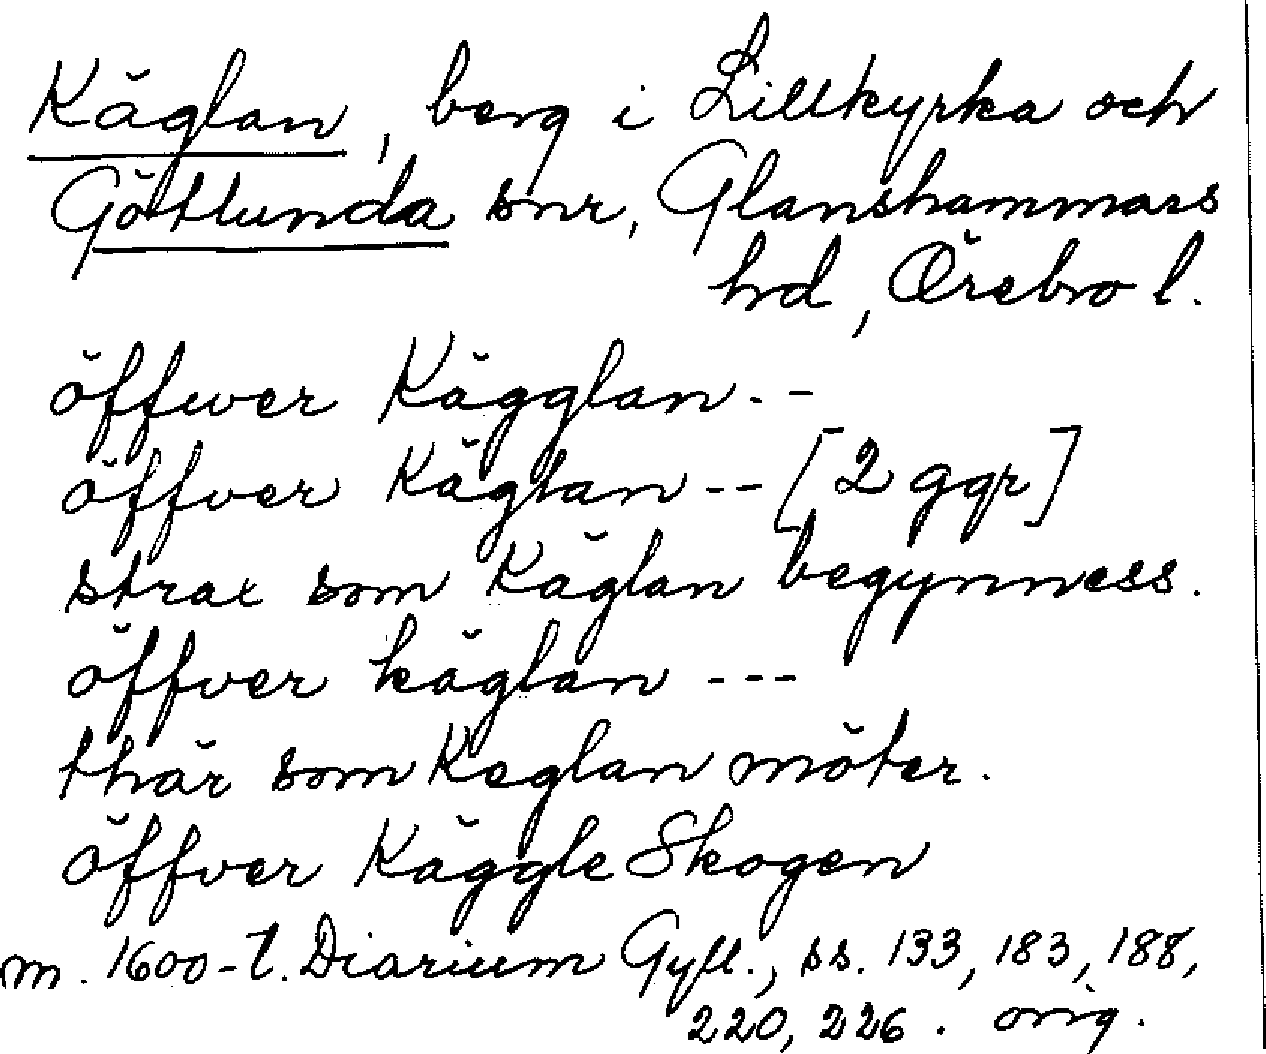 Käglan, berg i Lillkyrka och
Götlunda snr, Glanshammars
hd, Örebro l.
öffwer Kägglan - -
öffver Käglan - - [2 ggr]
strax som Käglan begynness.
öffver käglan - - -
thär som Keglan möter.
öffver Käggle Skogen
m. 1600-t. Diarium Gyll., ss. 133, 183, 188,
220, 226. orig.